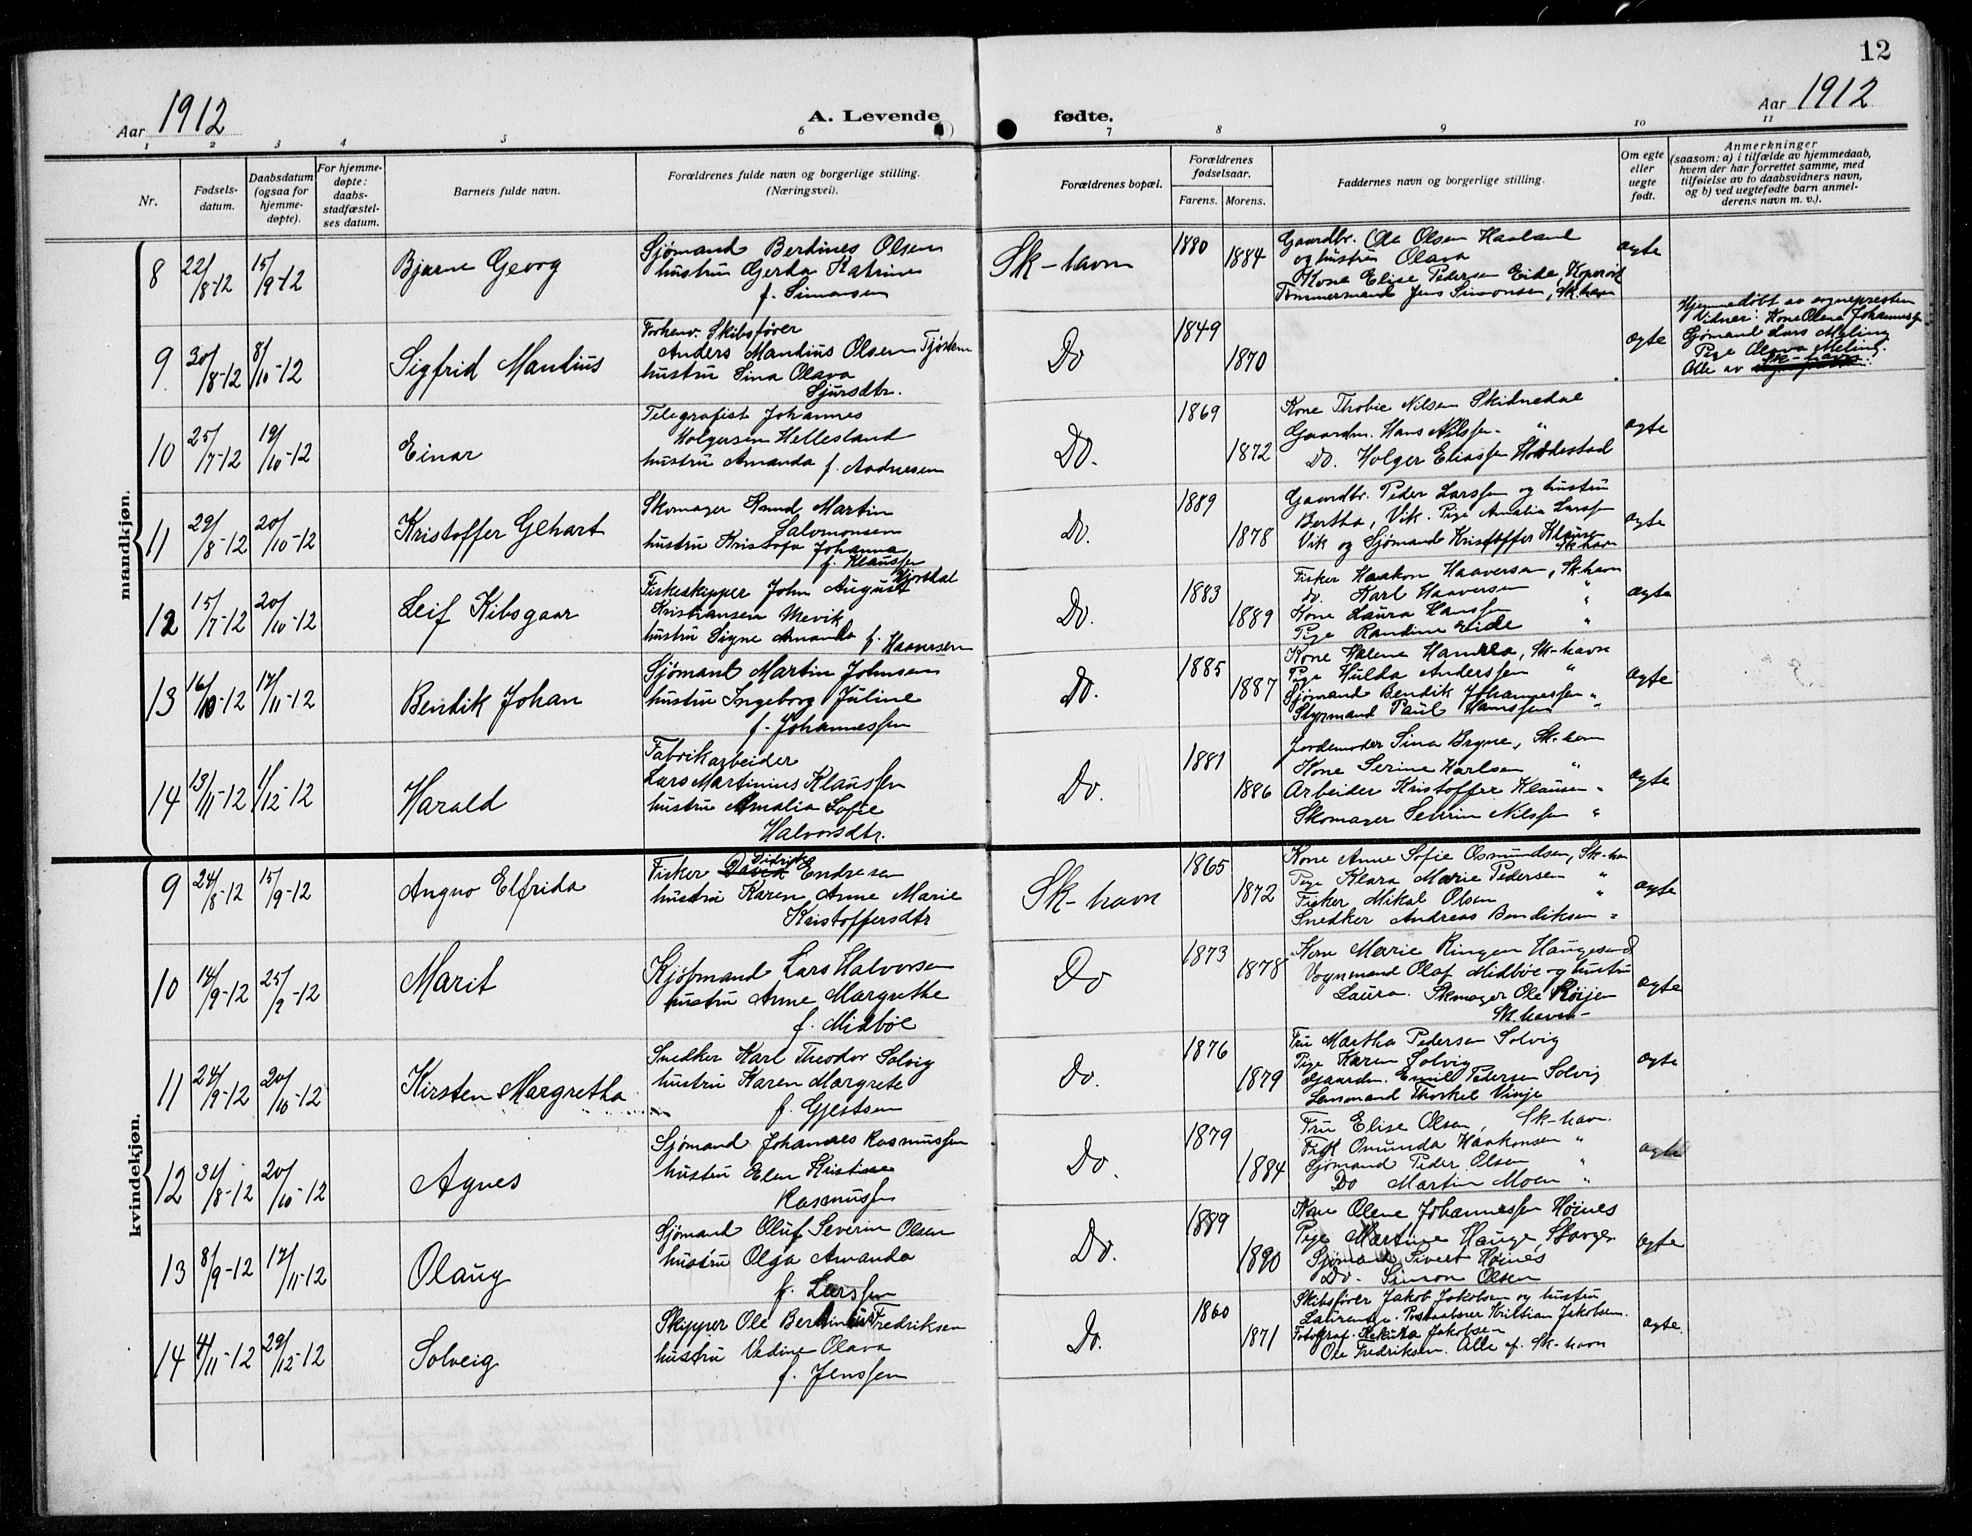 12
Aar 1912
A. Levende fødte.
Aar 1912
1 2 3 4 5 6 7 8 9 10 11
Nr.
Fødsels-
datum.
Daabsdatum
(ogsaa for
hjemme-
døpte).
For hjemme-
døpte:
daabs-
stadfæstel-
ses datum.
Barnets fulde navn.
Forældrenes fulde navn og borgerlige stilling.
(Næringsvei).
Forældrenes bopæl.
Forældrenes
fødselsaar.
Farens. Morens.
Faddernes navn og borgerlige stilling.
Om egte
eller
uegte
født.
Anmerkninger
(saasom: a) i tilfælde av hjemmedaab,
hvem der har forrettet samme, med
tilføielse av to daabsvidners navn,
og b) ved uegtefødte barn anmel-
derens navn m. v.).
mandkjøn.
8 22/8-12 15/9-12 Bjarne Georg
Sjømand Bertines Olsen
hustru Gerda Katrine
f. Simonsen
Sk-havn 1880 1884
Gaardbr. Ole Olsen Haaland
og hustru Olava
Kone Elise Pedersen Eide, Kopervik
Tømmermand Jens Simonsen, Sk.havn
ægte
9 30/8-12 8/10-12 Sigfrid Mantius
Forhenv. Skibsfører
Anders Mandius Olsen
hustru Sina Olava
Sjursdtr.
Do 1849 1870
ægte
Hjemmedøbt av sognepresten
Vidner: Kone Olene Johannessen
Sjømand Lars Meling
Pige Olava Meling.
Alle av Sk-havn.
10 25/7-12 19/10-12 Einar
Telegrafist Johannes
Holgersen Hellesland
hustru Amanda f. Andresen
Do. 1869 1872
Kone Thobie Nilsen Skidnedal
Gaardm. Hans Nilssen "
Do. Holger Eliassen
ægte
11 29/8-12 20/10-12 Kristoffer Gehart
Skomager Knud Martin
Salomonsen
hustru Kristofa Johanna
f. Klaussen
Do. 1889 1878
Gaardbr. Peder Larssen og hustru
Bertha, Vik. Pige Amalia Larssen
Vik og Sjømand Kristoffer Klausen
Sk.havn
ægte
12 15/7-12 20/10-12 Leif Kibsgaar
Fiskeskipper John August Hjorthal
Kristiansen Mevik
hustru Signe Amanda f. Haaversen
Do. 1883 1889
Fisker Haakon Haaversen, Sk.havn
Do. Karl Haaversen "
Kone Laura Hanssen
Pige Randine Eide "
ægte
13 16/10-12 17/11-12 Bendik Johan
Sjømand Martin Johnsen
hustru Ingeborg Juline
f. Johannessen
Do. 1885 1887
Kone Malene Hamre, Sk-havn
Pige Hulda Anderssen "
Sjømand Bendik Johannessen "
Styrmand Paul Hanssen "
ægte
14 13/11-12 1/12-12 Harald
Fabrikarbeider
Lars Martinius Klaussen
hustru Amalia Sofie
Halvorsdtr.
Do. 1881 1886
Jordemoder Sina Bryne, Sk-havn
Kone Serine Karlsen "
Arbeider Kristoffer Klausen "
Skomager Severin Nilssen "
ægte
kvindekjøn.
9 24/8-12 15/9-12 Elfrida
Fisker Didrik Endresen
hustru Karen Anne Marie
Kristoffersdtr
Sk-havn 1865 1872
Kone Anne Sofie Osmundsen, Sk-havn
Pige Klara Marie Pedersen "
Fisker Mikal Olsen "
Snedker Andreas Bendiksen "
ægte
10 14/9-12 25/9-12 Marit
Kjøbmand Lars Halvorsen
hustru Anne Margrethe
f. Midbøe
Do 1873 1878
Kone Marie Ringen Haugesund
Vognmand Olaf Midbøe og hustru
Laura. Skomager Ole
Sk. havn-
ægte
11 24/9-12 20/10-12 Kirsten Margretha
Snedker Karl Theodor Solvig
hustru Karen Margrete
f. Gjestsen
Do. 1876 1879
Fru Martha Pedersen Solvig
Pige Karen Solvig
Gaardm. Emil Pedersen Solvig
Lensmand Thorkel Vinje
ægte
12 31/8-12 20/10-12 Agnes
Sjømand Johannes Rasmussen
hustru Elen Kristine
Rasmussen
Do. 1879 1884
Fru Elise Olsen, Sk-havn.
Frk Omunda Haakonsen "
Sjømand Peder Olsen "
Do Martin Moen "
ægte
13 8/9-12 17/11-12 Olaug
Sjømand Oluf Severin Olsen
hustru Olga Amanda
f. Larssen
Do. 1889 1890
Kone Olene Johannessen Høines
Pige Martine Hauge,
Sjømand Sivert Høines
Do. Simon Olsen
ægte
14 4/11-12 29/12-12 Solveig
Skipper Ole Fredriksen
hustru Vadine Olava
f. Jenssen
Do. 1860 1871
Skibsfører Jakob Jakobsen og hustru
Laurentse. Postaabner Kristian Jakobsen.
Fotograf. Jakobsen
Ole Fredriksen. Alle af Sk-havn
ægte.